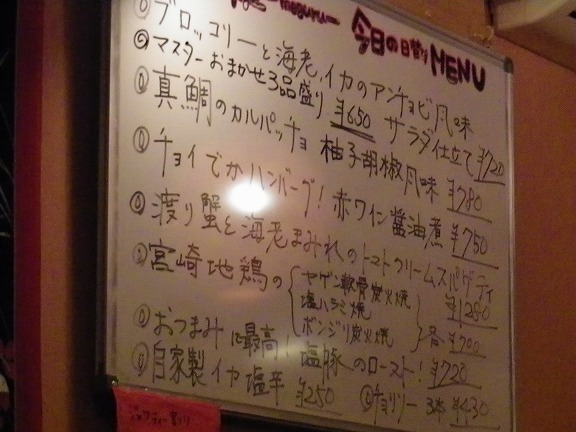 今日の日替り MENU
ブロッコリーと海老、イカのアンチョビ風味
サラダ仕立て ¥720
マスターおまかせ3品盛り ¥650
真鯛のカルパッチョ 柚子胡椒風味 ¥780
チョイでかハンバーグ!赤ワイン醤油煮 ¥750
渡り蟹と海老まみれのトマトクリームスパゲティ ¥1280
宮崎地鶏の
ヤゲン軟骨炭火焼
塩ハラミ焼
ボンジリ炭火焼
各 ¥700
おつまみに最高!塩豚のロースト! ¥720
自家製イカ塩辛 ¥250
チョリソー 3本 ¥430